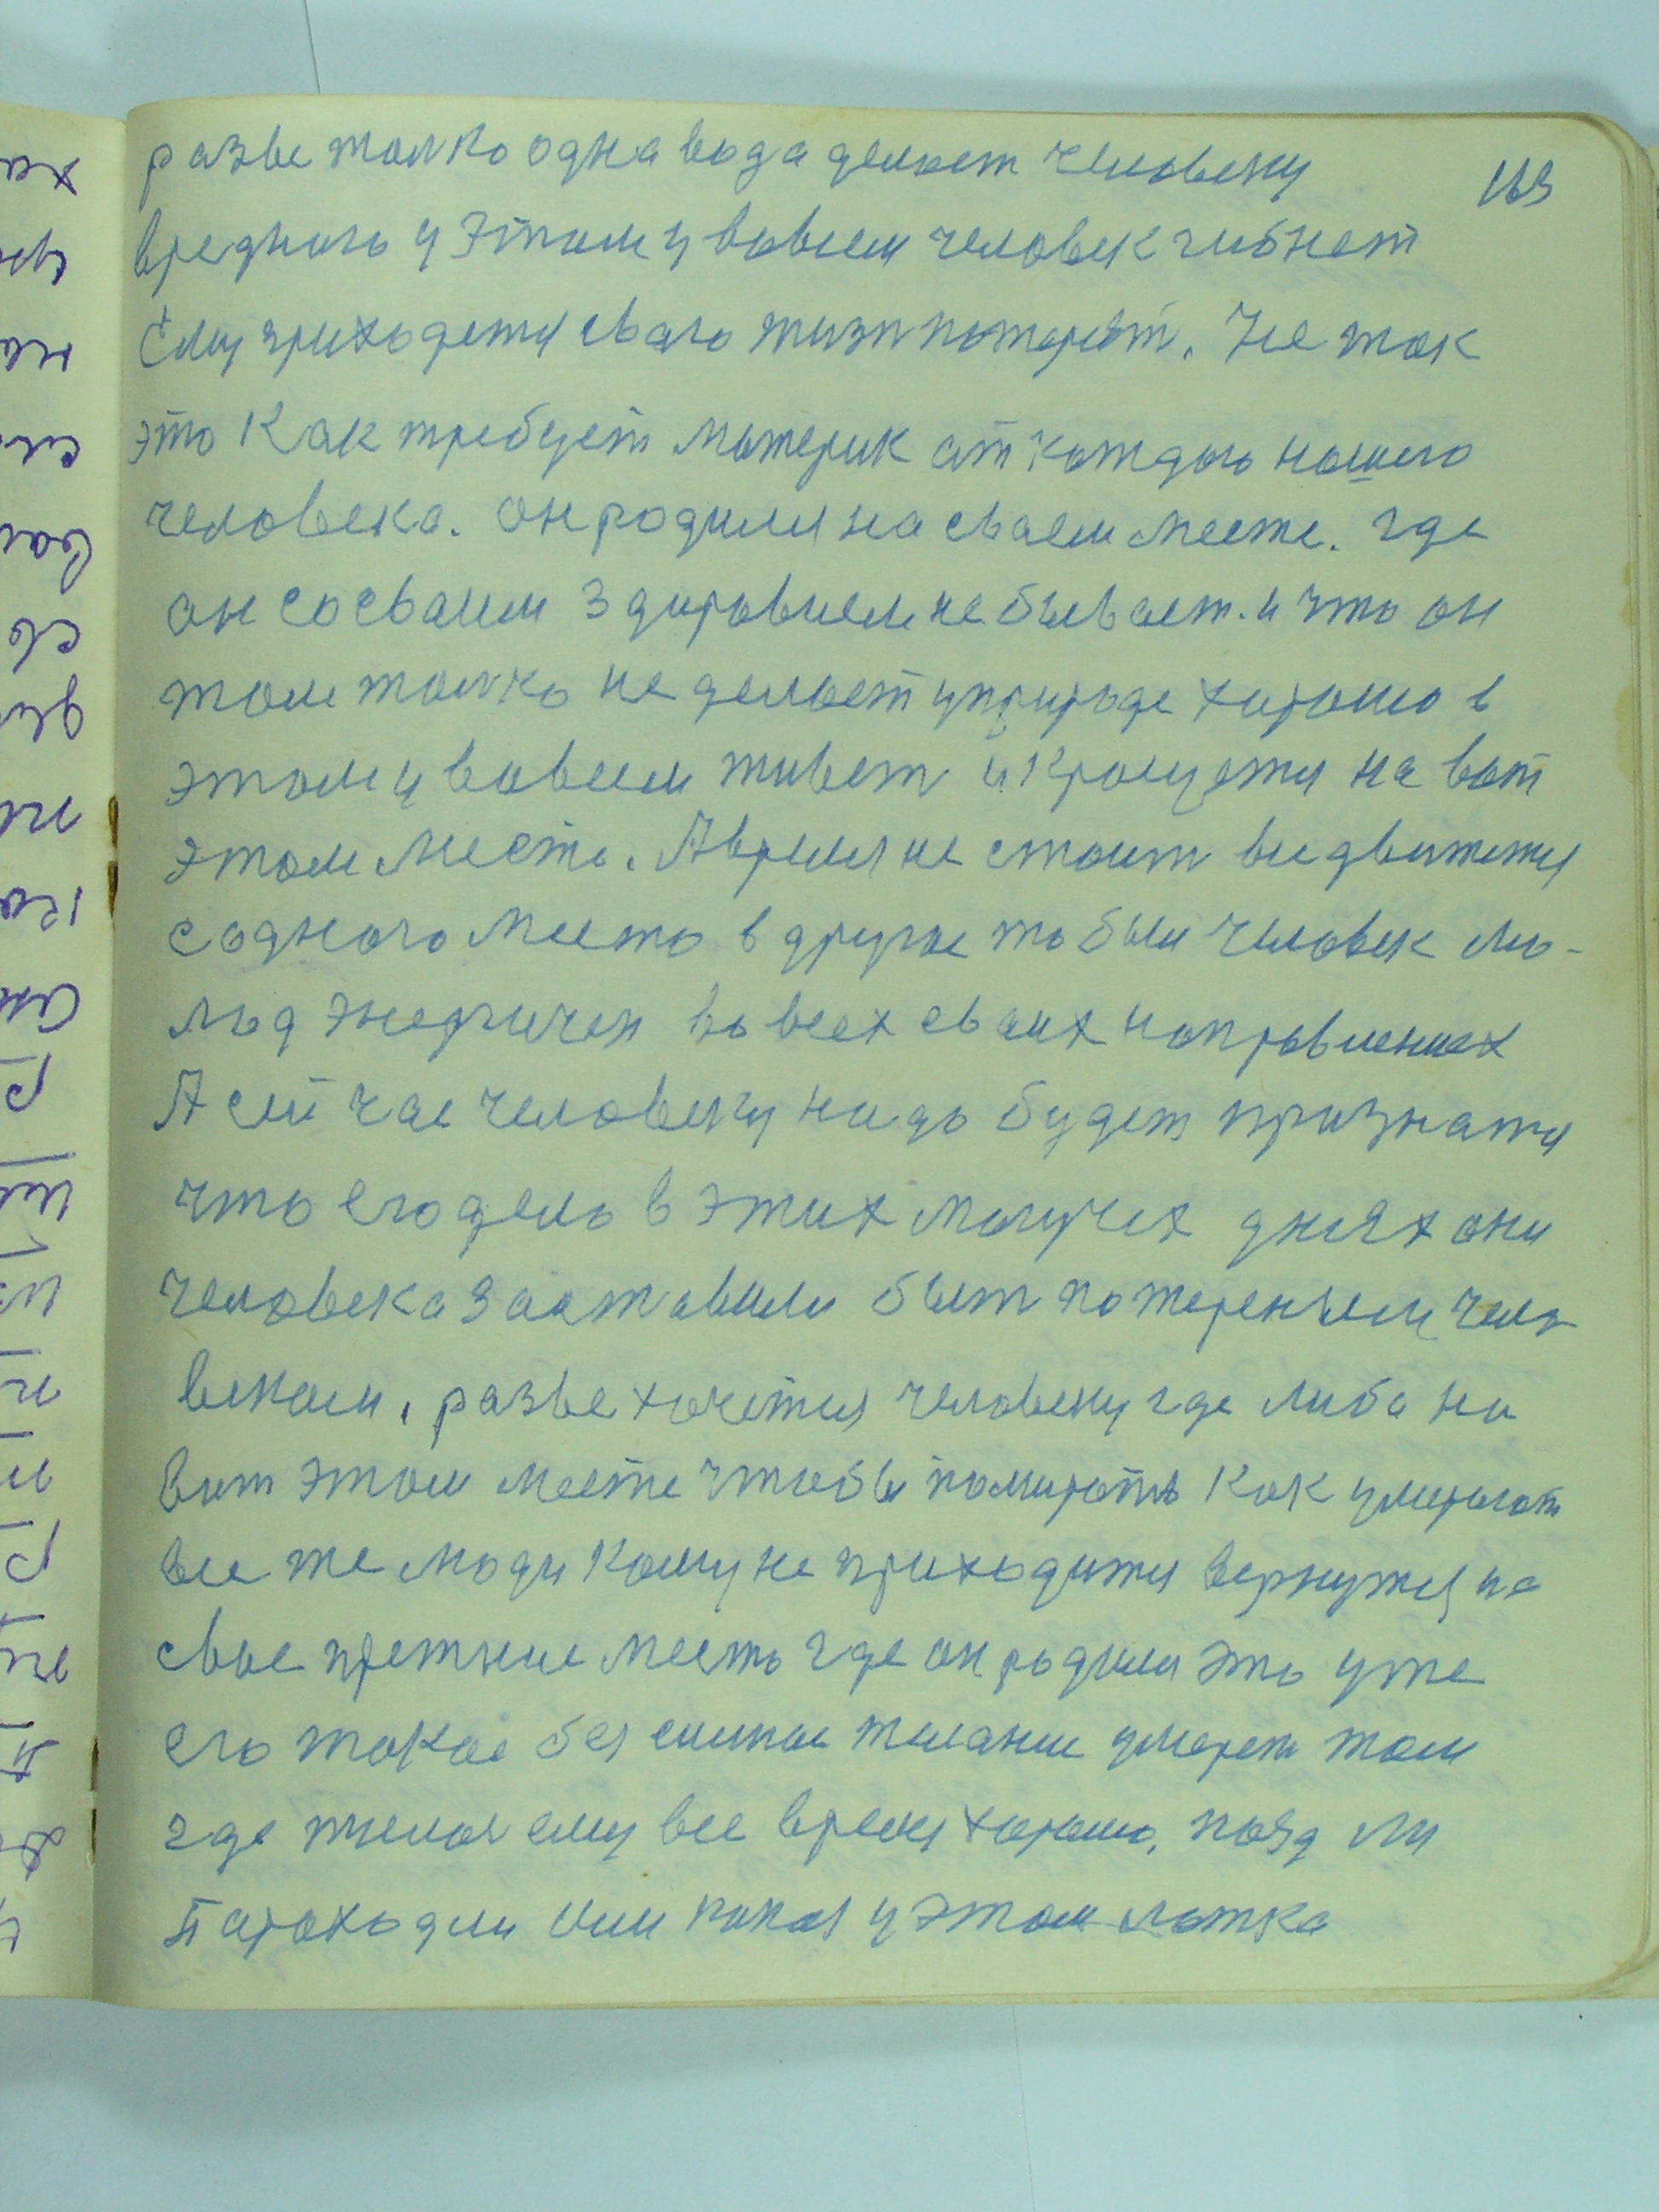 163
разве толко одна вода делает человеку
вредного у этом у вовсем человек гибнет
Ему приходется сваго жизн потерят. Не так
это Как требует материк от каждого нашего
человека. он родился на сваем месте. где
он со сваим здоровием не бывает. и что он
там толко не делает у природе хорошо в
этом у вовсем живет и кромется на вот
этом месте. А время не стоит все движется
с одного место в другое то был человек мо-
лод энергичен во всех сваих направлениях
А сейчас человеку надо будет признатся
что его дело в этих могучех днях они
человека заставили быт потереным чело
веком, разве хочется человеку где либо на
вот этом месте чтобы помирать Как умирают
все те люди Кому не приходится вернутся на
свое прежние место где он родился это уже
его такое желание умерет там
где жилос ему все время хорошо, поезд ли
Пароход ли или у этом лотка